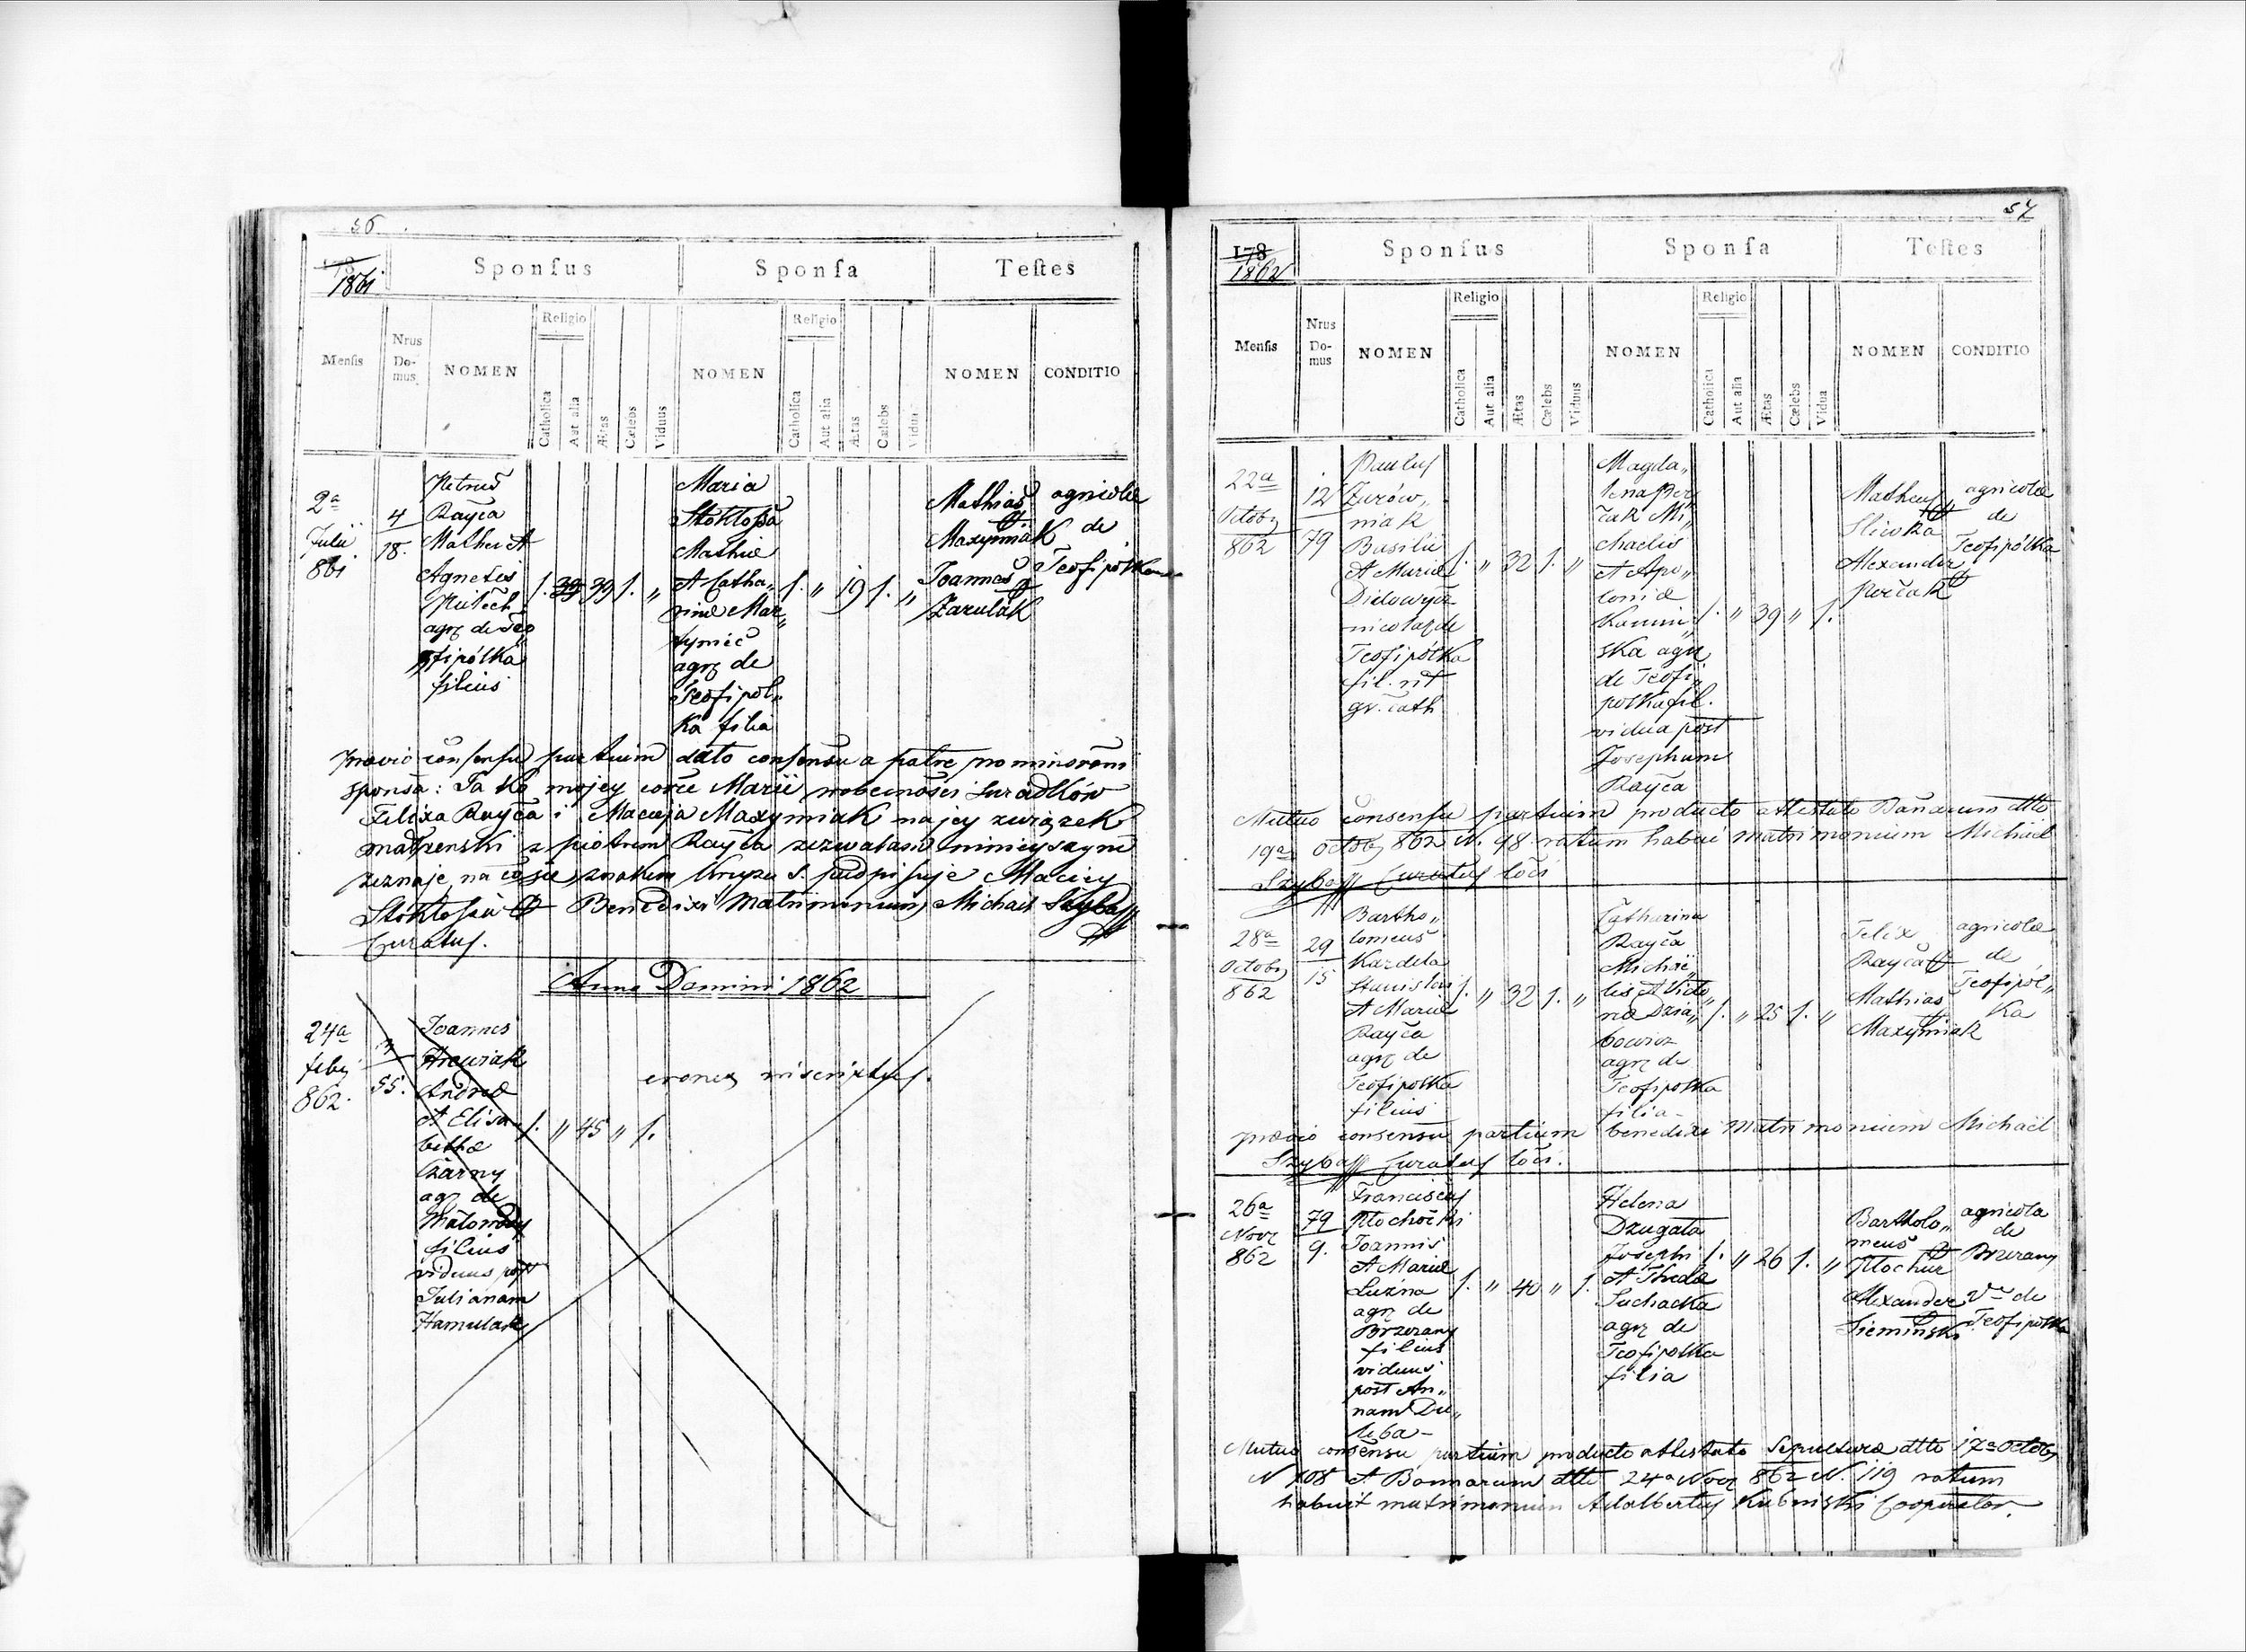 56.
178 1861
Sponsus
Sponsa
Testes
Mensis
Nrus Do- mus
NOMEN
Religio
Catholica
Aut alia
Ætas
Cœlebs
Viduus
NOMEN
Religio
Catholica
Aut alia
Ætas
Cœlebs
Vidua
NOMEN
CONDITIO
2a
Julii
861
4
18.
Petrus
Rayca
Mathei et
Agnetis
agr de Teo
fipólka
filius
1. 39 39 1. „
Maria
Stokłossa
Mathiæ
et Catha„
rinæ Mar„
agr de
Teofipol„
ka filia
1. „ 19 1. „
Mathias
Maxymiak
Joannes
Zarulak
agricolæ
de
Teofipolka
prævio consensu partium dato consensu a patre pro minorem
sponsa: Ja ko mojey corce Marii w obecności swiadków
Felixa Rayca i Macieja Maxymiak na jey związek
małżenski z piotrem Rayca zezwalam niniejszym
zeznaje na co sie znakiem krzyza S. podpisuje Maciey
Stokłossa Benedixi Matrimonium Michael Szyba
Curatus.
Anno Domini 1862
24a
feby
862.
55.
Joannes
Andreæ
et Elisa
bethæ
Czarny
agr de
filius
viduus post
Julianam
Hamulak
1. „ 45 „ 1.
57
178 1862
Sponsus
Sponsa
Testes
Mensis
Nrus Do- mus
NOMEN
Religio
Catholica
Aut alia
Ætas
Cœlebs
Viduus
NOMEN
Religio
Catholica
Aut alia
Ætas
Cœlebs
Vidua
NOMEN
CONDITIO
22a
Octob
862
12
79
Paulus
Zurów„
niak
Basilii
et Mariæ
Didowycz
fil. rit
gr. cath
1. „ 32 1. „
Magda„
lena Por
cak Mi„
chaelis
et Apo„
loniæ
Kamin„
ska agr
de Teofi„
polka fil.
vidua post
Josephum
Rayca
1. „ 39 „ 1.
Matheus
Sliwka
Alexander
Porcak
agricolæ
de
Teofipólka
Mutuo consensu partium producto attestato Banarum dtto
19a Octob 862 N. 98 ratum habui matrimonium Michael
Szyba Curatus loci
28a
Octob
862
29
15
Bartho„
lomeus
Kardela
Stanislai
et Mariæ
Rayca
agr de
Teofipolka
filius
1. „ 32 1. „
Catharina
Rayca
Michae„
lis et Victo„
riæ Dzia„
bowicz
agr de
Teofipolka
filia
1. „ 25 1. „
Felix
Rayca
Mathias
Maxymiak
agricolæ
de
Teofipól„
ka
prævio consensu partium benedixi Matrimonium Michaël
Szyba Curatus loci.
26a
Novr
862
79
9.
Franciscus
Kłochocki
Joannis
et Mariæ
Luzna
agr de
Brzezany
filius
viduus
post An„
nam Du„
leba
1. „ 40 „ 1.
Helena
Dzugała
Josephi
et Theclæ
Suchacka
agr de
Teofipolka
filia
1. „ 26 1. „
Bartholo„
meus
Alexander
Sieminski
agricola
de
Brzezany
de
Teofipolka
Mutuo consensu partium producto attestato Sepulturæ dtto 17a Octob
N 108 et Bannarum dtto 24a Novr 862 N. 119 ratum
habuit matrimonium Adalbertus Kubniski Cooperator.